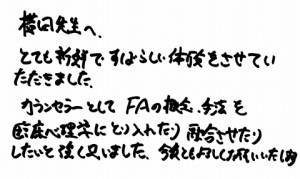 横田先生へ、
とても新鮮ですばらしい体験をさせてい
ただきました。
カウンセラーとして FAの概念、手法を
臨床心理学にとり入れたり融合させたり
したいと強く思いました、今後ともよろしくお願いいたします